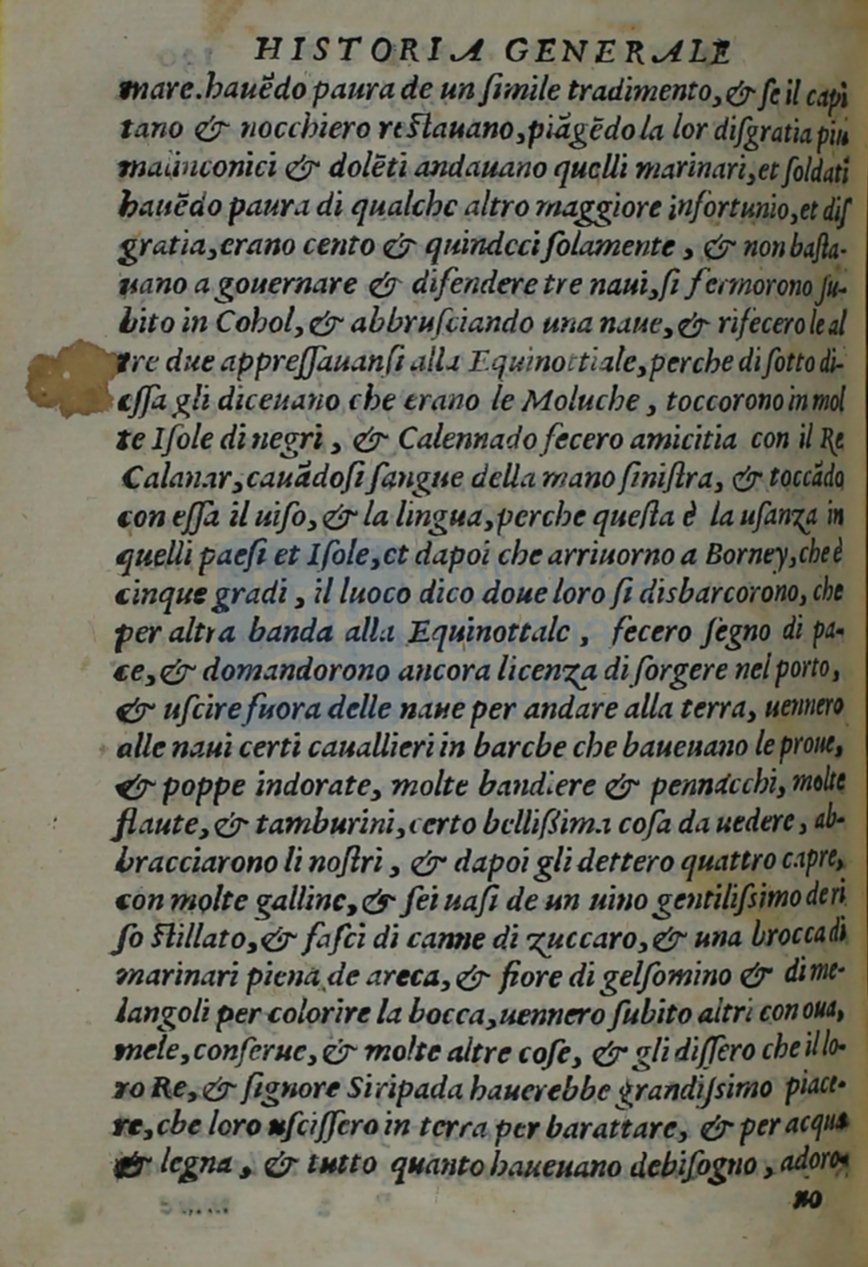 HISTORIA GENERALE
mare.hauēdo paura de un ſimile tradimento,& ſe il capi
tano & nocchiero reſtauano,piāgēdo la lor diſgratia piu
malinconici & dolēti andauano quelli marinari,et ſoldati
hauēdo paura di qualche altro maggiore infortunio,et diſ
gratia,erano cento & quindeci ſolamente , & non baſta-
uano a gouernare & difendere tre naui,ſi fermorono ſu-
bito in Cohol,& abbruſciando una naue,& rifecero le al
tre due appreſſauanſi alla Equinottiale,perche di ſotto di-
eſſa gli diceuano che erano le Moluche , toccorono in mol
te Iſole di negri , & Calennado fecero amicitia con il Re
Calanar,cauādoſi ſangue della mano ſiniſtra, & toccādo
con eſſa il uiſo,& la lingua,perche queſta è la uſanza in
quelli paeſi et Iſole,et dapoi che arriuorno a Borney,che è
cinque gradi , il luoco dico doue loro ſi disbarcorono, che
per altra banda alla Equinottale , fecero ſegno di pa-
ce,& domandorono ancora licenza di ſorgere nel porto,
& uſcire fuora delle naue per andare alla terra, uennero
alle naui certi cauallieri in barche che haueuano le proue,
& poppe indorate, molte bandiere & pennacchi, molte
flaute,& tamburini,certo belliſſima coſa da uedere, ab-
bracciarono li noſtri , & dapoi gli dettero quattro capre,
con molte galline,& ſei uaſi de un uino gentiliſsimo de ri
ſo ſtillato,& faſci di canne di zuccaro,& una brocca di
marinari piena de areca,& fiore di gelſomino & di me-
langoli per colorire la bocca,uennero ſubito altri con oua,
mele,conſerue,& molte altre coſe, & gli diſſero che il lo-
ro Re,& ſignore Siripada hauerebbe grandiſsimo piace-
re,che loro uſciſſero in terra per barattare, & per acqua
& legna , & tutto quanto haueuano debiſogno , adoro-
no